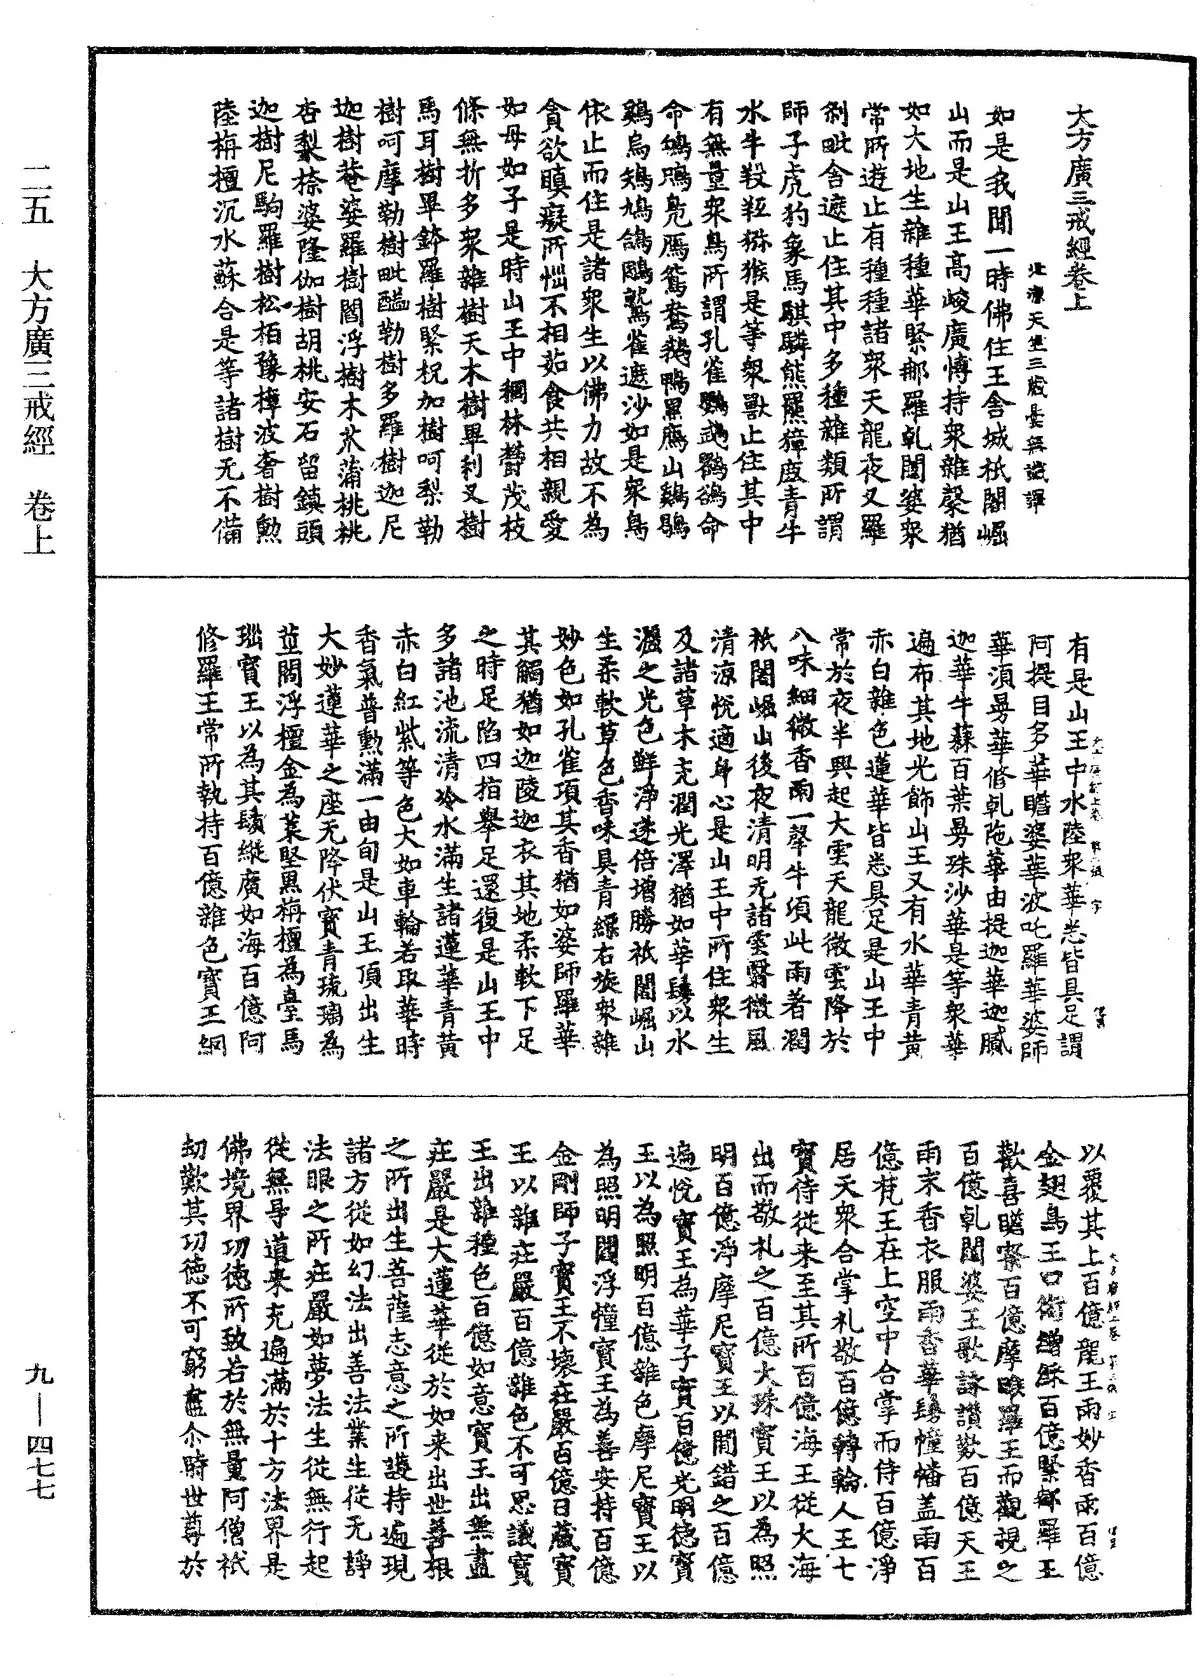 大方廣三戒經卷上
北涼天竺三藏曇無讖譯
如是我聞一時佛住王舍城祇闍崛
山而是山王高峻廣博持衆雜馨猶
如大地生雜種華緊那羅乹闥婆衆
常所遊止有種種諸衆天龍夜叉羅
刹毗舍遮止住其中多種雜類所謂
師子虎豹象馬騏驎熊羆獐䴥青牛
水牛羖羝猕猴是等衆獸止住其中
有無量衆鳥所謂孔雀鸚鵡鸜鵒命
命鳩鴡凫鴈鴛鴦鵝鴨黑鴈山鷄鶡
鷄烏鵄鳩鴿鵰鷲雀遮沙如是衆鳥
依止而住是諸衆生以佛力故不為
貪欲瞋癡所惱不相茹食共相親愛
如母如子是時山王中稠林欝茂枝
條無折多衆雜樹天木樹畢利叉樹
馬耳樹畢鉢羅樹緊柷加樹呵梨勒
樹呵摩勒樹毗醯勒樹多羅樹迦尼
迦樹菴婆羅樹閻浮樹木苽蒲桃桃
杏梨㮈婆隆伽樹胡桃安石留鎮頭
迦樹尼駒羅樹松栢豫樟波奢樹勲
陸栴檀沉水蘇合是等諸樹无不備
有是山王中水陸衆華悉皆具足謂
阿提目多華瞻婆華波吒羅華婆師
華湏曼華修乹陁華由提迦華迦膩
迦華牛蘇百葉曼珠沙華是等衆華
遍布其地光飾山王又有水華青黄
赤白雜色蓮華皆悉具足是山王中
常於夜半興起大雲天龍微雲降於
八味細微香雨一䚏牛頃此雨著潤
祇闍崛山後夜清明无諸雲翳微風
清涼悅適身心是山王中所住衆生
及諸草木充潤光澤猶如華鬘以水
灑之光色鮮淨遂倍增勝祇闍崛山
生柔軟草色香味具青縹右旋衆雜
妙色如孔雀項其香猶如婆師羅華
其觸猶如迦陵迦衣其地柔軟下足
之時足陷四指舉足還復是山王中
多諸池流清冷水滿生諸蓮華青黄
赤白紅紫等色大如車輪若取華時
香氣普勲滿一由旬是山王頂出生
大妙蓮華之座无降伏寶青琉璃為
莖閻浮檀金為葉堅黑栴檀為臺馬
瑙寶王以為其鬚縱廣如海百億阿
修羅王常所執持百億雜色寶王網
以覆其上百億龍王雨妙香雨百億
金翅鳥王口銜繒綵百億緊那羅王
歡喜瞻察百億摩睺羅王而觀視之
百億乹闥婆王歌詠讃歎百億天王
雨末香衣服雨香華鬘幢幡蓋雨百
億梵王在上空中合掌而侍百億淨
居天衆合掌礼敬百億轉輪人王七
寶侍從来至其所百億海王從大海
出而敬礼之百億大珠寶王以為照
明百億淨摩尼寶王以間錯之百億
遍悅寶王為華子寶百億光明德寶
王以為照明百億雜色摩尼寶王以
為照明閻浮憧寶王為善安持百億
金剛師子寶王不壞㽵嚴百億日蔵寶
王以雜㽵嚴百億雜色不可思議寶
王出雜種色百億如意寶王出無盡
㽵嚴是大蓮華從於如来出世善根
之所出生菩薩志意之所護持遍現
諸方從如幻法出善法業生從无諍
法眼之所㽵嚴如夢法生從無行起
從無㝵道来充遍滿於十方法界是
佛境界功德所致若於無量阿僧祇
劫歎其功德不可窮盡尒時世尊於
二五　大方廣三戒經　卷上
九—四七七